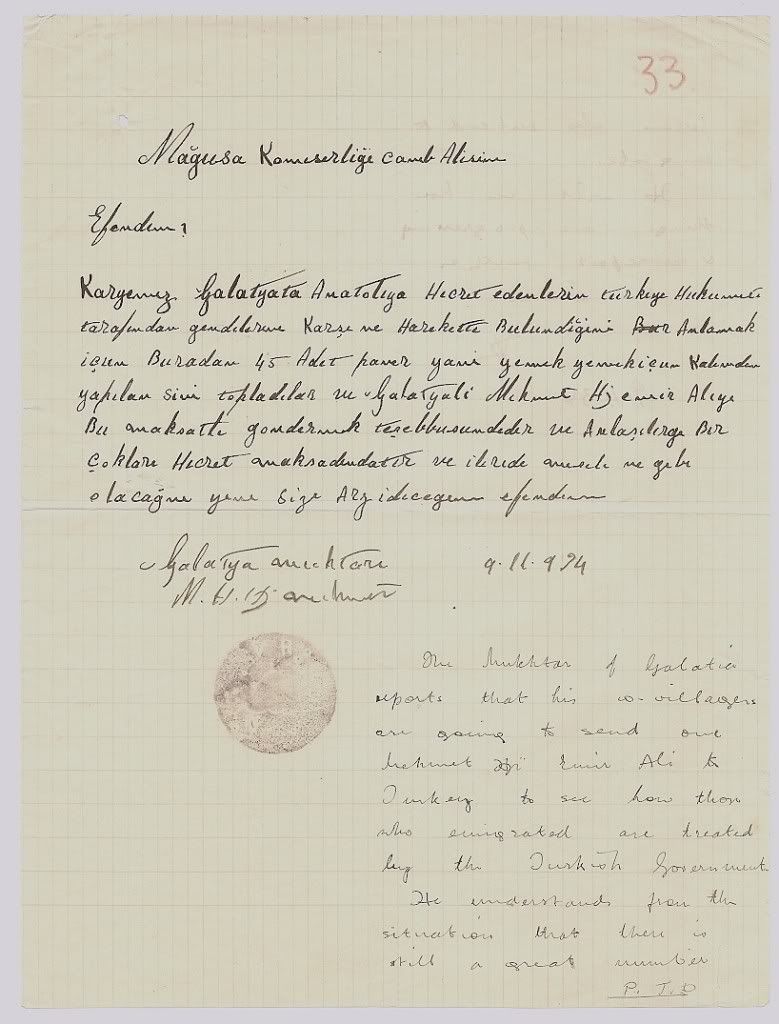 33
Mağusa Komeserliğe canib Alisine
Efendem;
Karyemiz Galatyata Anatoliya Hicret edenlerin turkiye Hukumeti
tarafından gendilerine Karşe ne Harekette Bulundiğini Anlamak
içun Buradan 45 Adet paner yani yemek yemekiçun
yapılan sini topladılar ve Galatyali Mehmet Hj emir Aliyi
Bu maksatle gondermek teşebbusundedir ve Anlaşılırge Bir
çokları Hicret maksadındatır ve ileride mesele ne gebi
olacağne yene size Arz idecegem efendem
Galatya muchtarı 9.11.934
M. H. Hj
The Mukhtar of Galatia
reports that his co-villagers
are going to send one
Mehmet Hji Emir Ali to
Turkey to see how those
who emigrated are treated
by the Turkish Government
He understands from the
situation that there is
still a great number
P. T. O